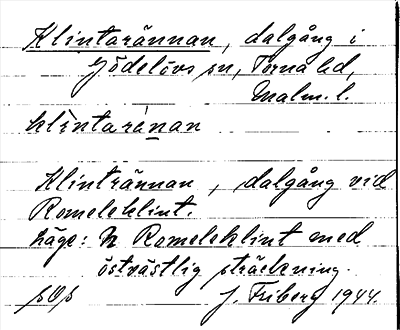 Klintarännan, dalgång i
Gödelövs sn, Torna hd,
Malm. l.
klìntaränan
Klintrännan, dalgång vid
Romeleklint.
Läge: N Romeleklint med
östvästlig sträckning.
J. Friberg 1944.